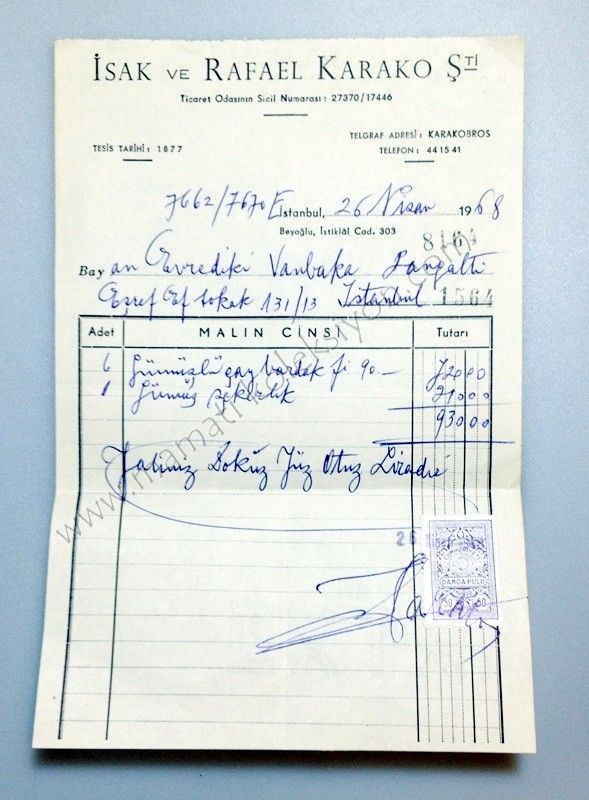 İSAK VE RAFAEL KARAKO ŞTİ
Ticaret Odasının Sicil Numarası: 27370/17446
TELGRAF ADRESİ: KARAKOBROS
TESİS TARİHİ: 1877
TELEFON: 44 15 41
7662/7670 E
İstanbul, 26 Nisan 1968
Beyoğlu, İstiklâl Cad. 303
8164
Bayan Evrediki Vanbaka Pangaltı
Eşref Ef sokak 131/13 İstanbul 1564
Adet MALIN CİNSİ Tutarı
6 Gümüşlü çay bardak fi 90.— 72000
1 Gümüş şekerlik 21000
93000
Yalınız Dokuz Yüz Otuz Liradır
26
DAMGA PULU
www.mamatkoleksiyon.com